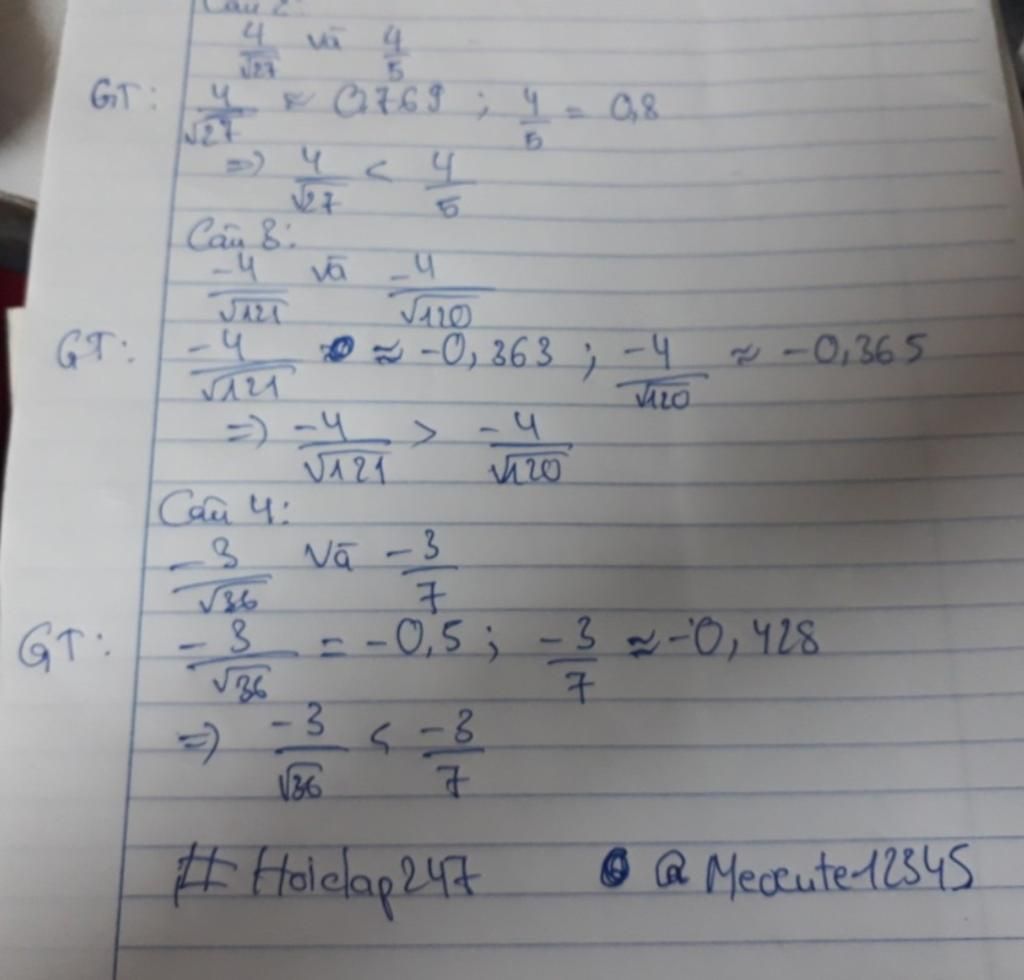 Câu 2:
4/√27 và 4/5
GT: 4/√27 ≈ 0,769 ; 4/5 = 0,8
=> 4/√27 < 4/5
Câu 3:
-4/√121 và -4/√120
GT: -4/√121 ≈ -0,363 ; -4/√120 ≈ -0,365
=> -4/√121 > -4/√120
Câu 4:
-3/√36 và -3/7
GT: -3/√36 = -0,5 ; -3/7 ≈ -0,428
=> -3/√36 < -3/7
#Hoidap247 @Meocute12345